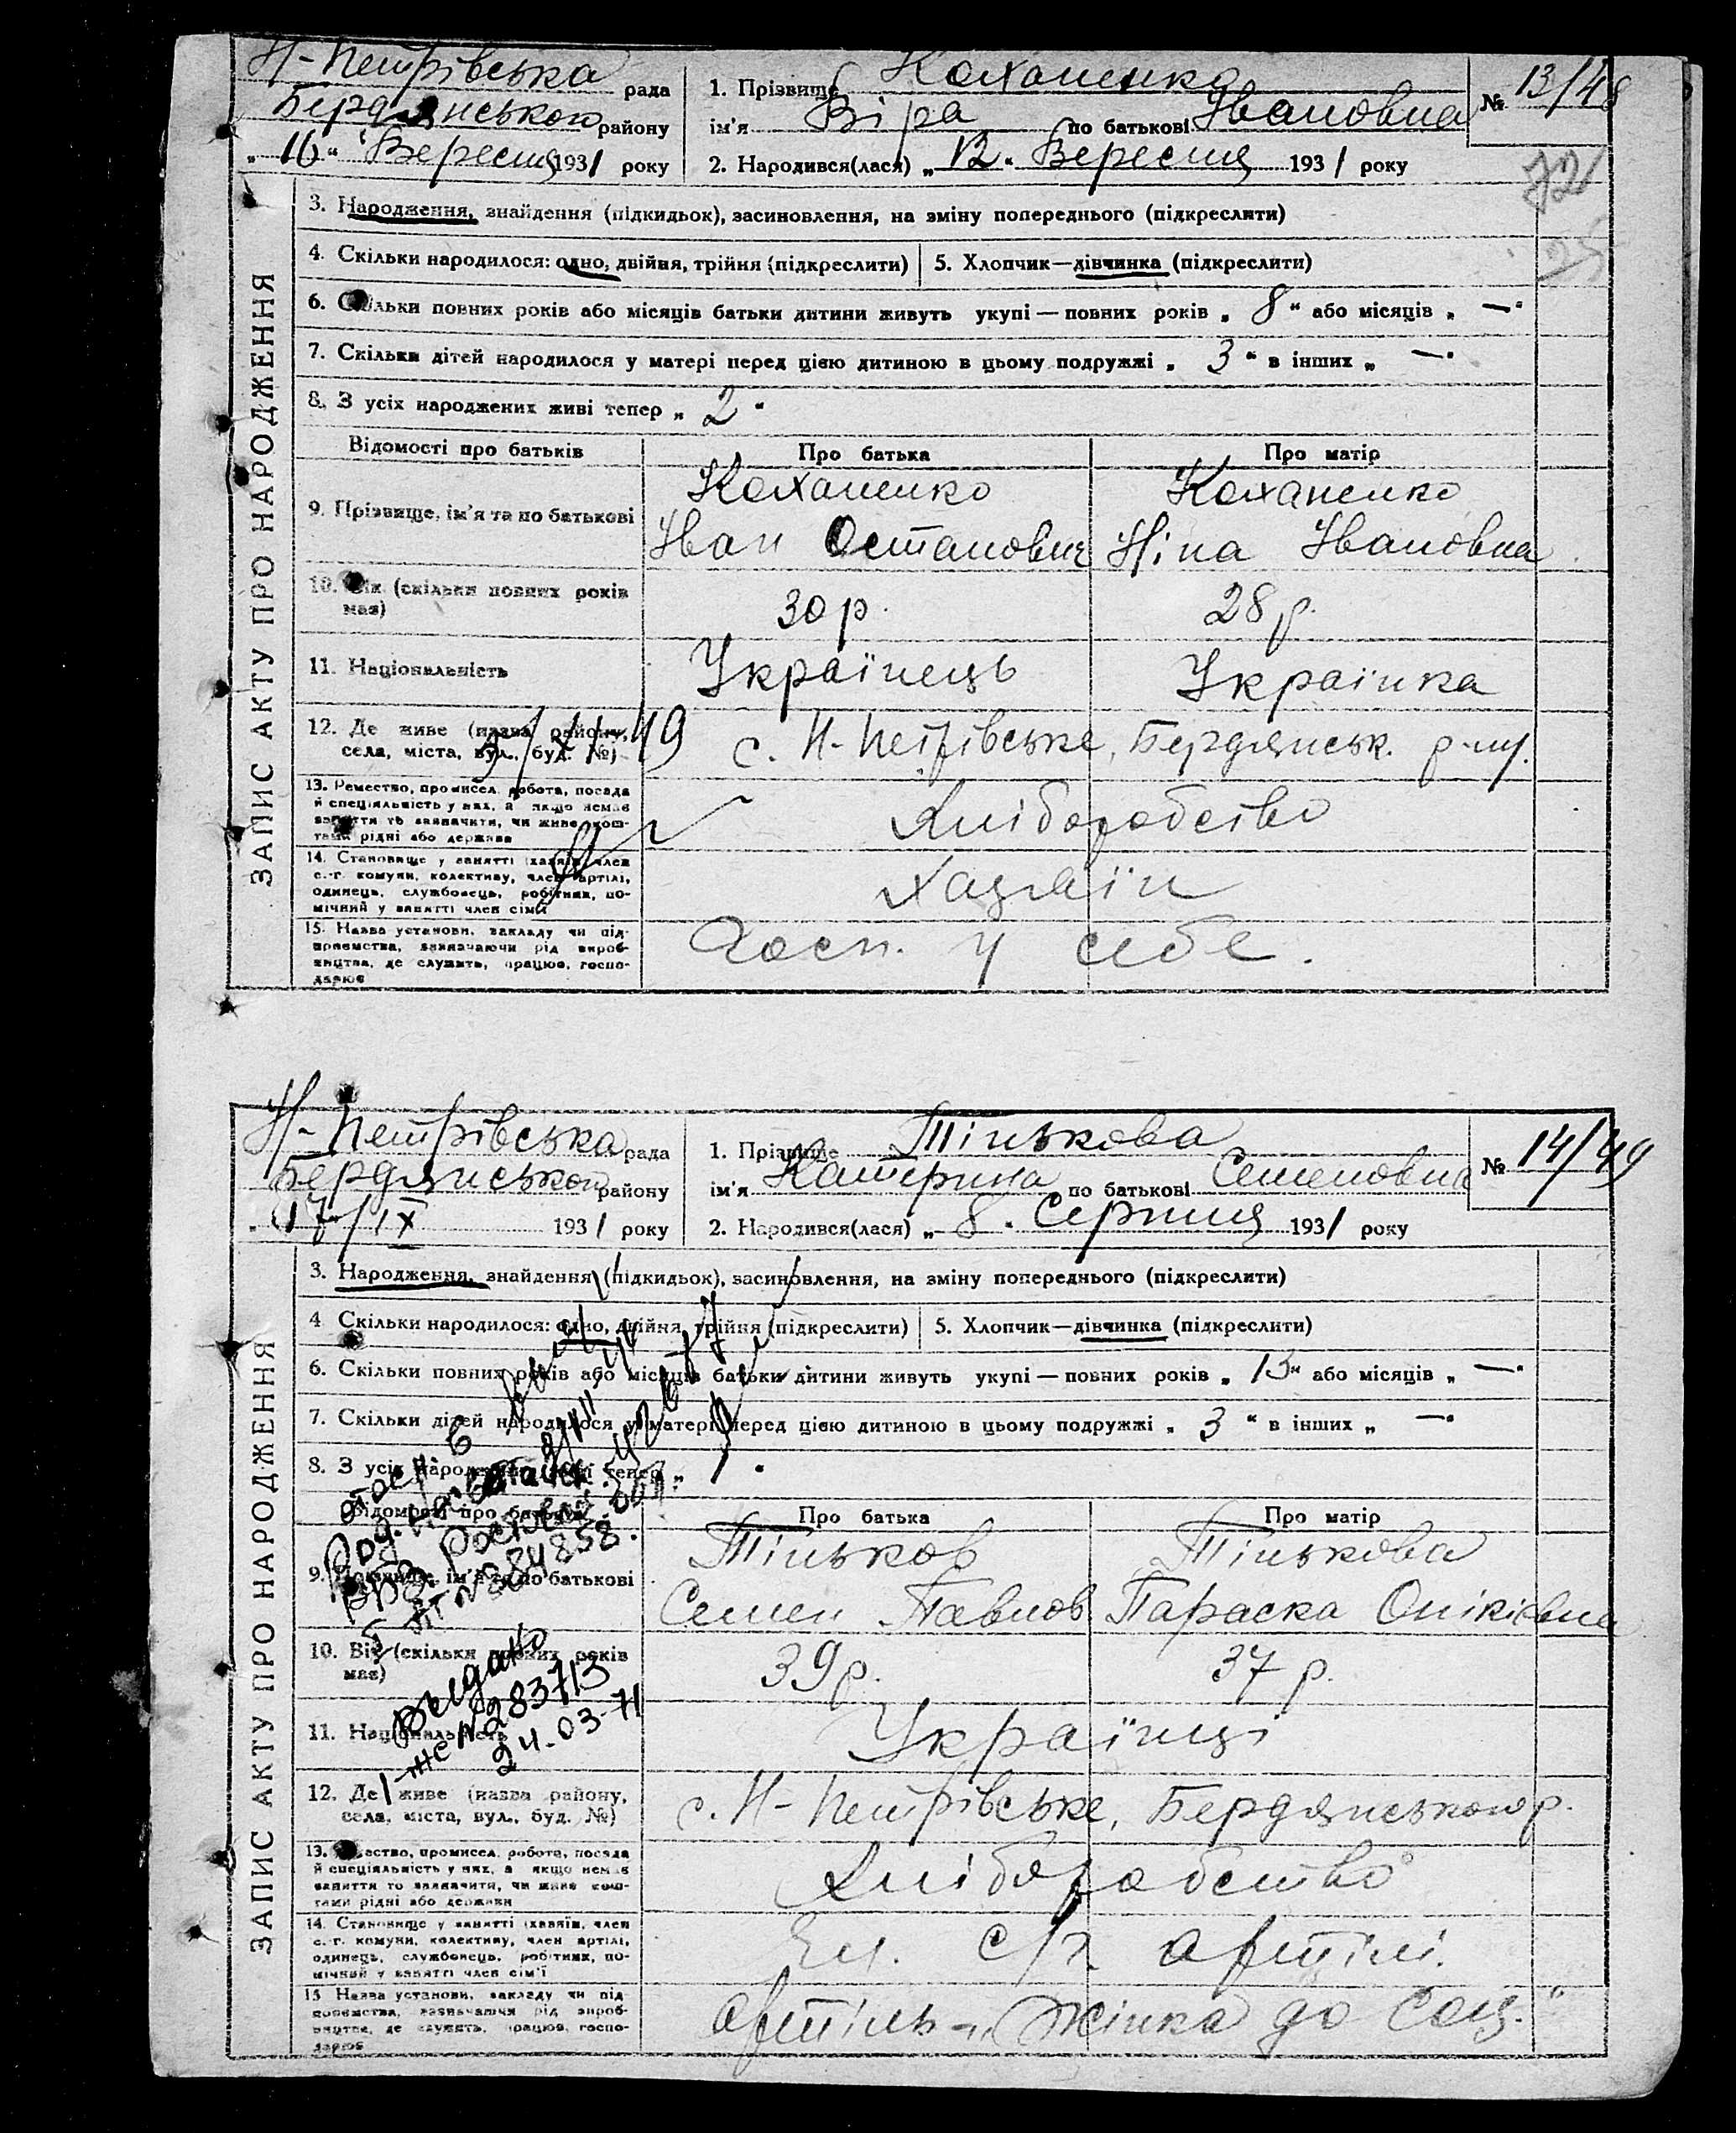 Н-Петрівська рада
Бердянського району
„16“ Вересня 1931 року
1. Прізвище Коханенко
ім'я Віра по батькові Івановна
2. Народився(лася) „12“ Вересня 1931 року
№ 13/48
72
25
ЗАПИС АКТУ ПРО НАРОДЖЕННЯ
3. Народження, знайдення (підкидьок), засиновлення, на зміну попереднього (підкреслити)
4. Скільки народилося: одно, двійня, трійня (підкреслити)
5. Хлопчик—дівчинка (підкреслити)
6. Скільки повних років або місяців батьки дитини живуть укупі — повних років „8“ або місяців „—“
7. Скільки дітей народилося у матері перед цією дитиною в цьому подружжі „3“ в інших „—“
8. З усіх народжених живі тепер „2“
Відомості про батьків Про батька Про матір
9. Прізвище, ім'я та по батькові
Коханенко Коханенко
Іван Остапович Ніна Івановна
10. Вік (скільки повних років має)
30 р. 28 р.
11. Національність Українець Українка
12. Де живе (назва району,
села, міста, вул., буд. №)
49
с. Н-Петрівське, Бердянськ. р-ну.
13. Ремество, промисел, робота, посада
й спеціяльність у них, а якщо немає
заняття то зазначити, чи живе кош-
тами рідні або держави
Хліборобство
14. Становище у занятті (хазяїн, член
с.-г. комуни, колективу, член артілі,
одинець, службовець, робітник, по-
мічний у занятті член сім'ї
Хазяїн
15. Назва установи, закладу чи під-
приємства, зазначаючи рід вироб-
ництва, де служить, працює, госпо-
дарює
Госп. у себе.
Н-Петрівська рада
Бердянського району
„17/IX 1931 року
1. Прізвище Тінькова
ім'я Катерина по батькові Семеновна
2. Народився(лася) „8“ Серпня 1931 року
№ 14/49
ЗАПИС АКТУ ПРО НАРОДЖЕННЯ
3. Народження, знайдення (підкидьок), засиновлення, на зміну попереднього (підкреслити)
4 Скільки народилося: одно, двійня, трійня (підкреслити)
5. Хлопчик—дівчинка (підкреслити)
6. Скільки повних років або місяців батьки дитини живуть укупі — повних років „13“ або місяців „—“
7. Скільки дітей народилося у матері перед цією дитиною в цьому подружжі „3“ в інших „—“
8. З усіх народжених живі тепер „1“
Відомості про батьків Про батька Про матір
9. Прізвище, ім'я та по батькові
Тіньков Тінькова
Семен Павлов Параска Онікіевна
284858.
10. Вік (скільки повних років має)
39 р. 37 р.
выдано
№ 283713
24-03-71
11. Національність Українці
12. Де живе (назва району,
села, міста, вул., буд. №)
с. Н-Петрівське, Бердянського р.
13. Ремество, промисел, робота, посада
й спеціяльність у них, а якщо немає
заняття то зазначити, чи живе кош-
тами рідні або держави
Хліборобство
14. Становище у занятті (хазяїн, член
с.-г. комуни, колективу, член артілі,
одинець, службовець, робітник, по-
мічний у занятті член сім'ї
Чл. с/г. артілі.
15 Назва установи, закладу чи під
приємства, зазначаючи рід вироб-
ництва, де служить, працює, госпо-
дарює
Артіль „Жінка до Соц.“